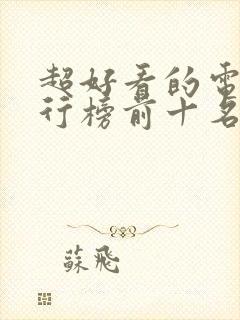 超好看的電
行榜前十名
蘇飛